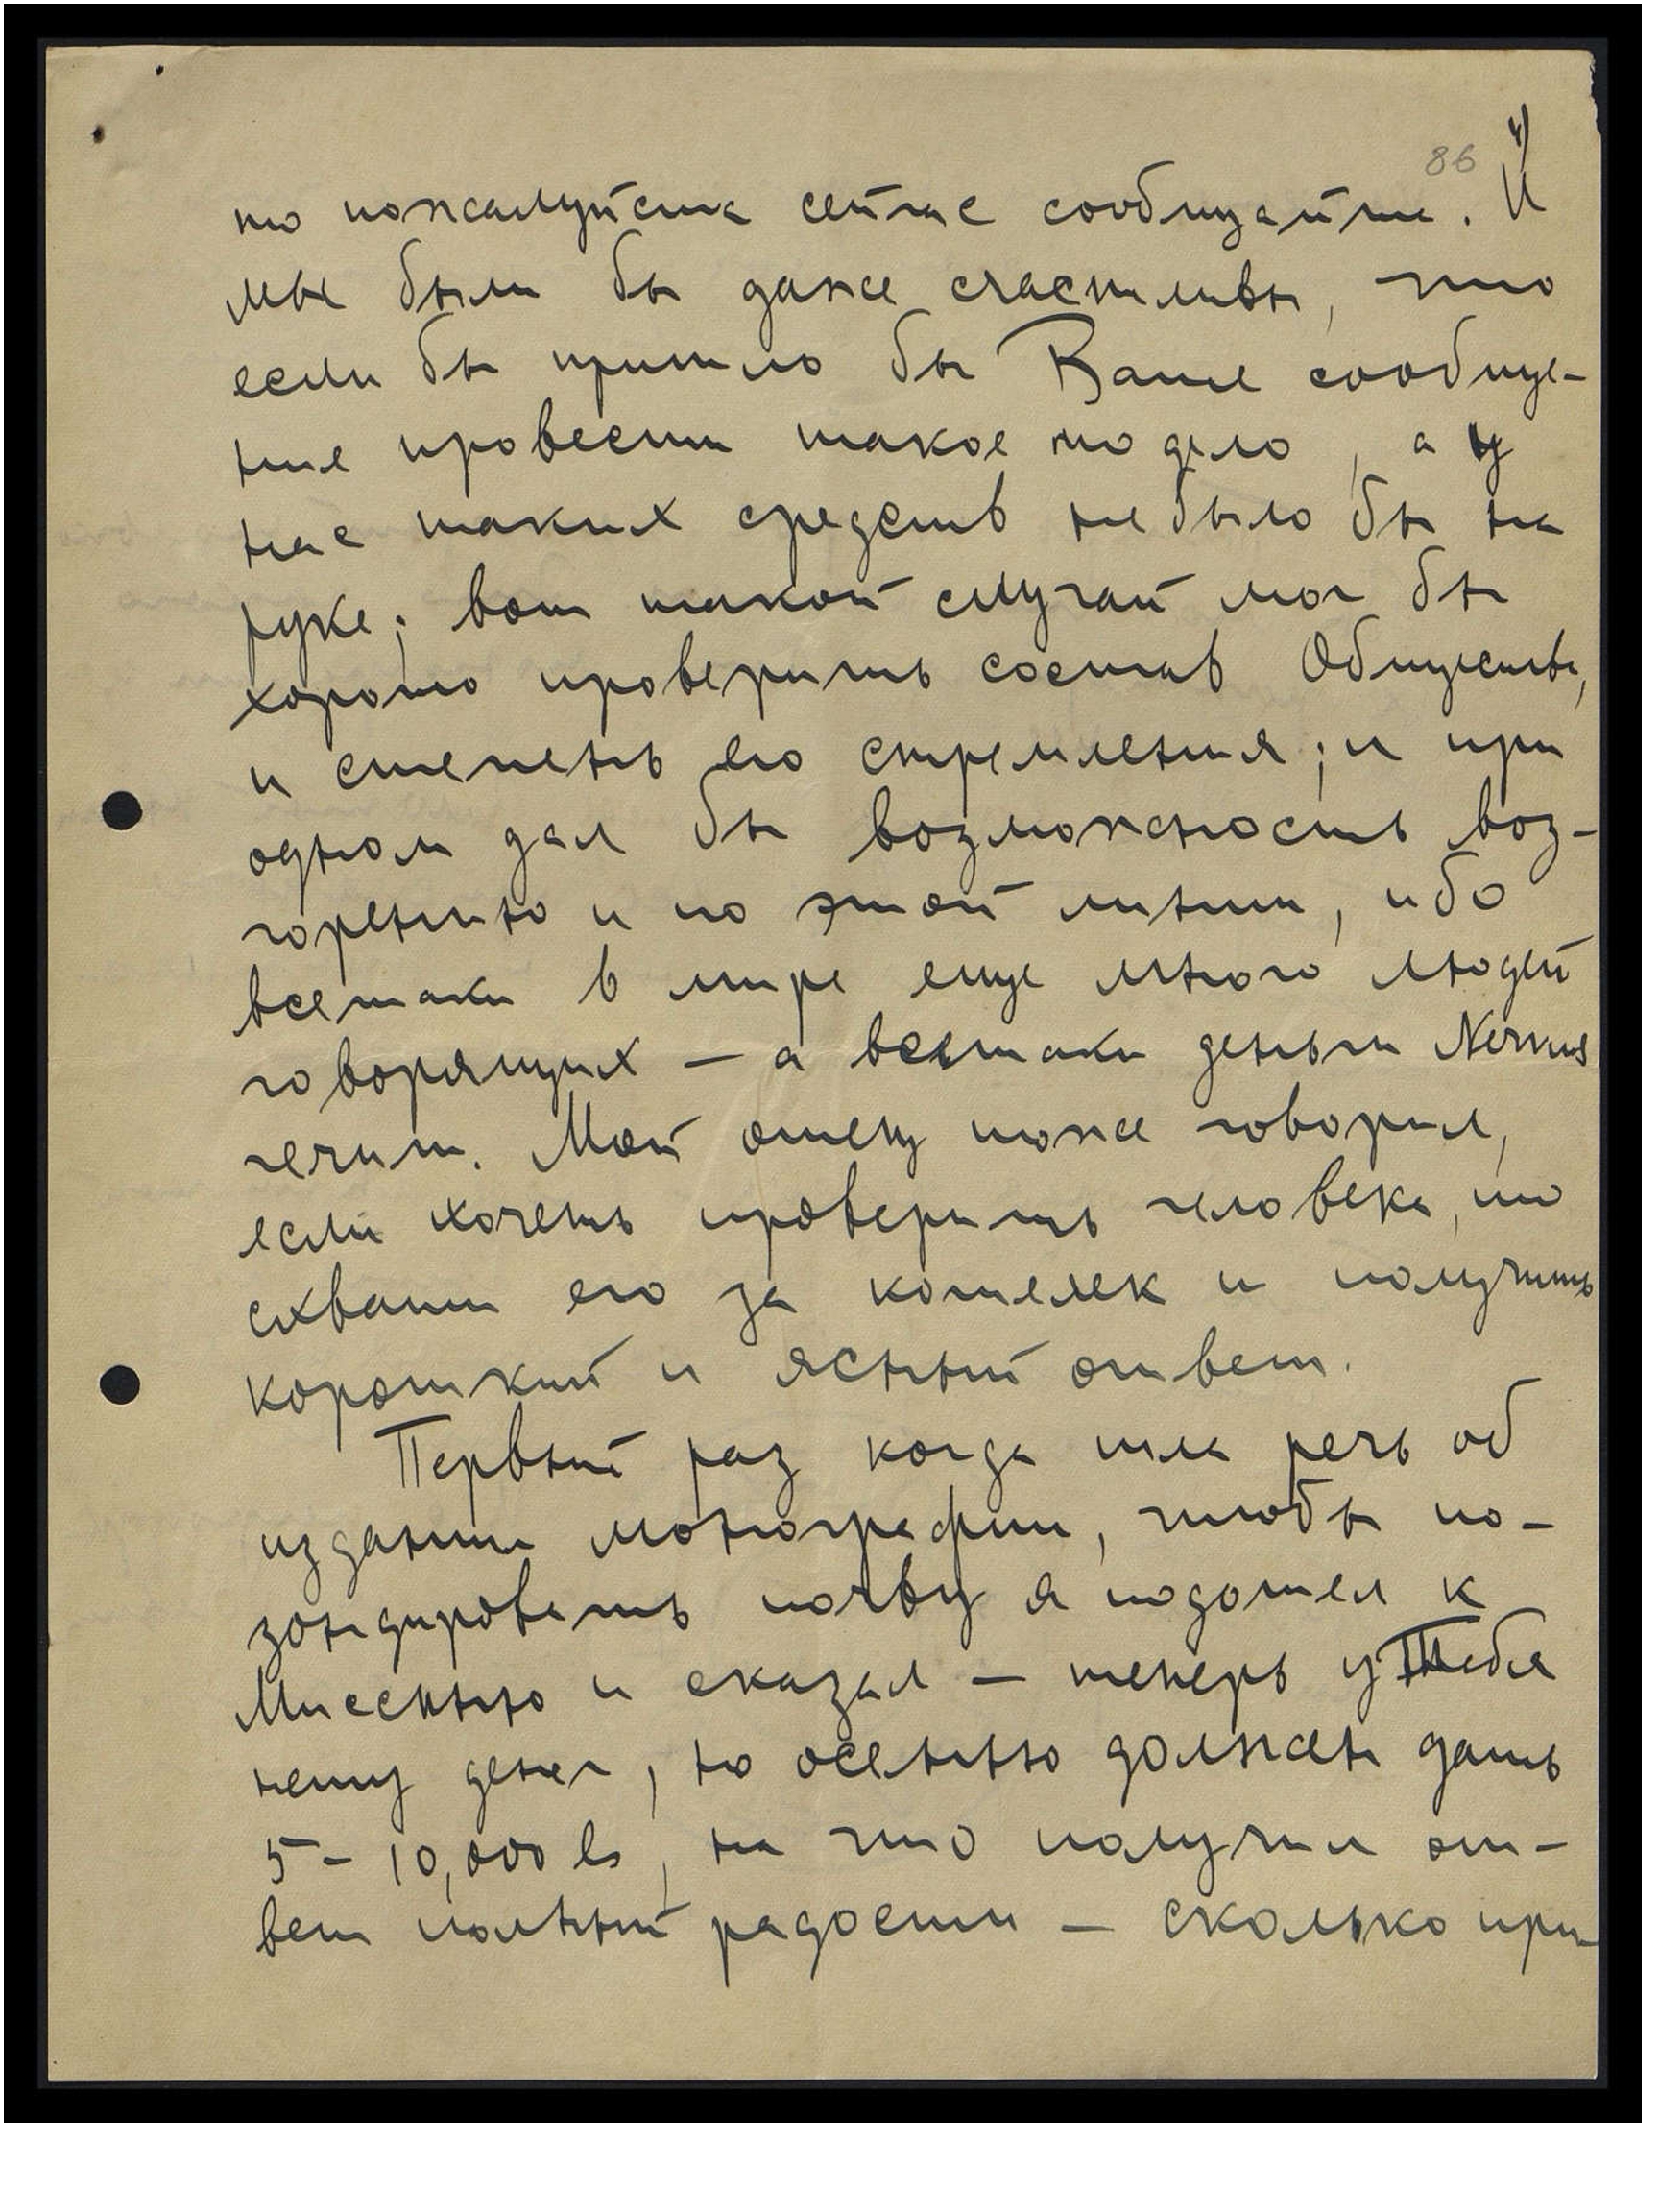 86 4)
то пожалуйста сейчас сообщайте. И
мы были бы даже счастливы, что
если бы пришло бы Ваше сообще-
ние провести такое то дело, а у
нас таких средств не было бы на
руке; вот такой случай мог бы
хорошо проверить состав Общества,
и степень его стремления; и при
одном дал бы возможность воз-
горению и по этой линии, ибо
всетаки в мире еще много людей
говорящих — а всетаки деньги Nervus
гечит. Мой отец тоже говорил,
если хочешь проверить человека, то
схвати его за кошелек и получишь
короткий и ясный ответ.
Первый раз когда шла речь об
издании монографии, чтобы по-
зондировать почву я подошел к
Миссиню и сказал — теперь у Тебя
нету денег, но осенью должен дать
5 - 10,000 ls, на что получил от-
вет полный радости — сколько при-